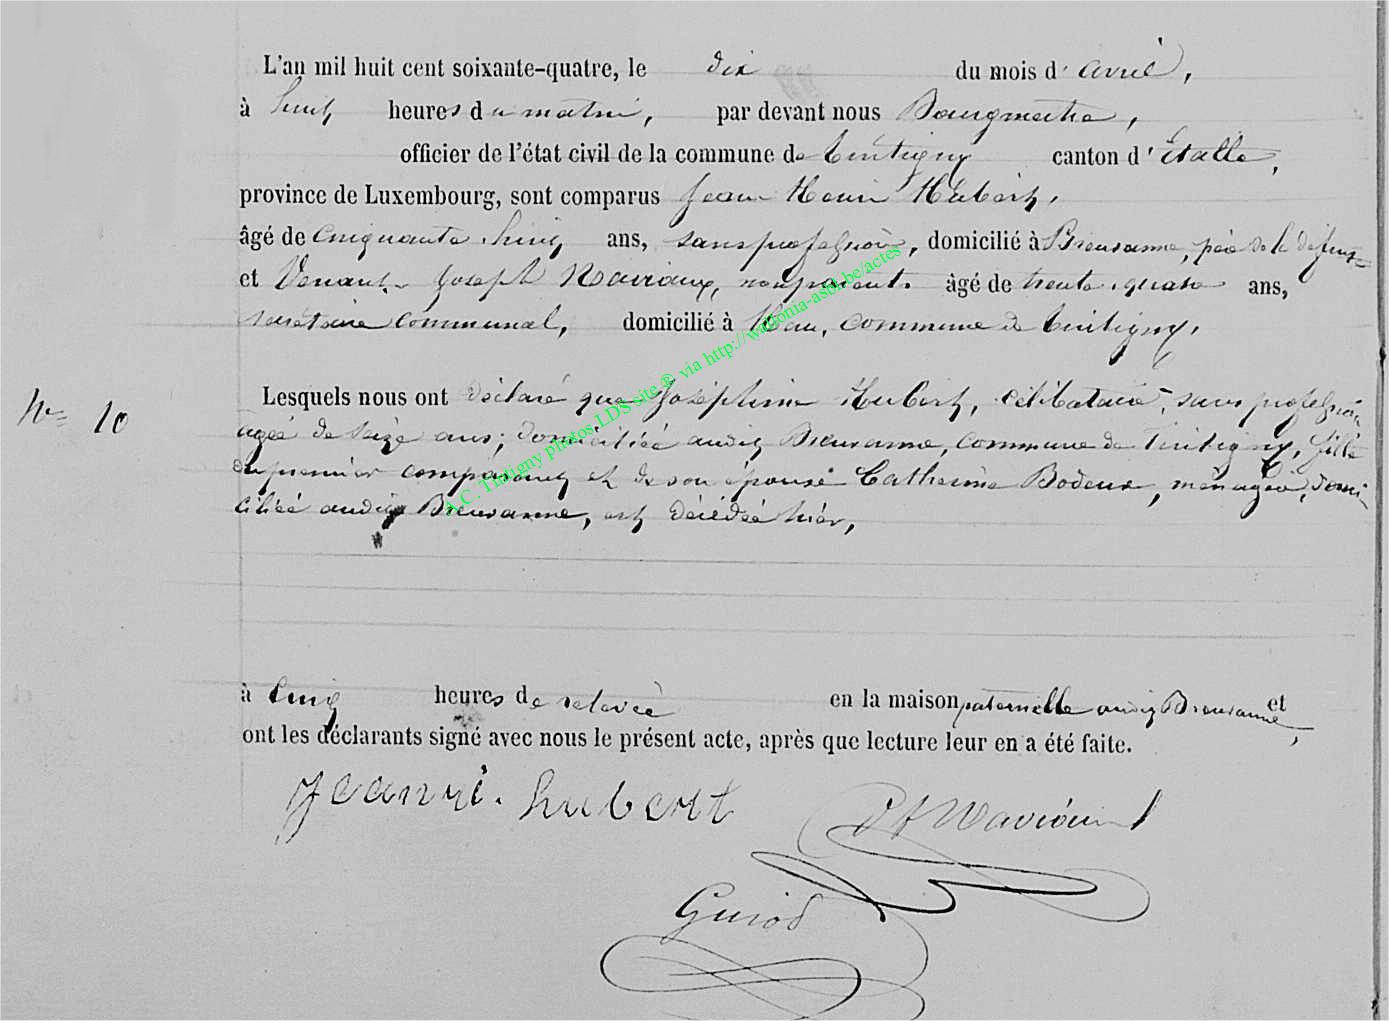 L'an mil huit cent soixante-quatre, le dix du mois d'avril,
à huit heures du matin, par devant nous Bourgmestre,
officier de l'état civil de la commune de Tintigny canton d'Etalle,
province de Luxembourg, sont comparus Jean Henri Hubert,
âgé de cinquante huit ans, sans profession, domicilié à Breuvanne, père de la défunte
et Venant Joseph Naviaux, non parent âgé de trente quatre ans,
secrétaire communal, domicilié à Han, commune de Tintigny,
Lesquels nous ont déclaré que Joséphine Hubert, célibataire, sans profession,
N° 10
agée de seize ans, domiciliée audit Breuvanne, commune de Tintigny, fille
du premier comparant et de son épouse Catherine Bodeux, ménagère, domi-
ciliée audit Breuvanne, est décédée hier,
à cinq heures de relevée en la maison paternelle audit Breuvanne, et
ont les déclarants signé avec nous le présent acte, après que lecture leur en a été faite.
Jean hubert
VJ Naviaux
Guiot
A.C. Tintigny photos LDS site ® via http://wallonia-asbl.be/actes